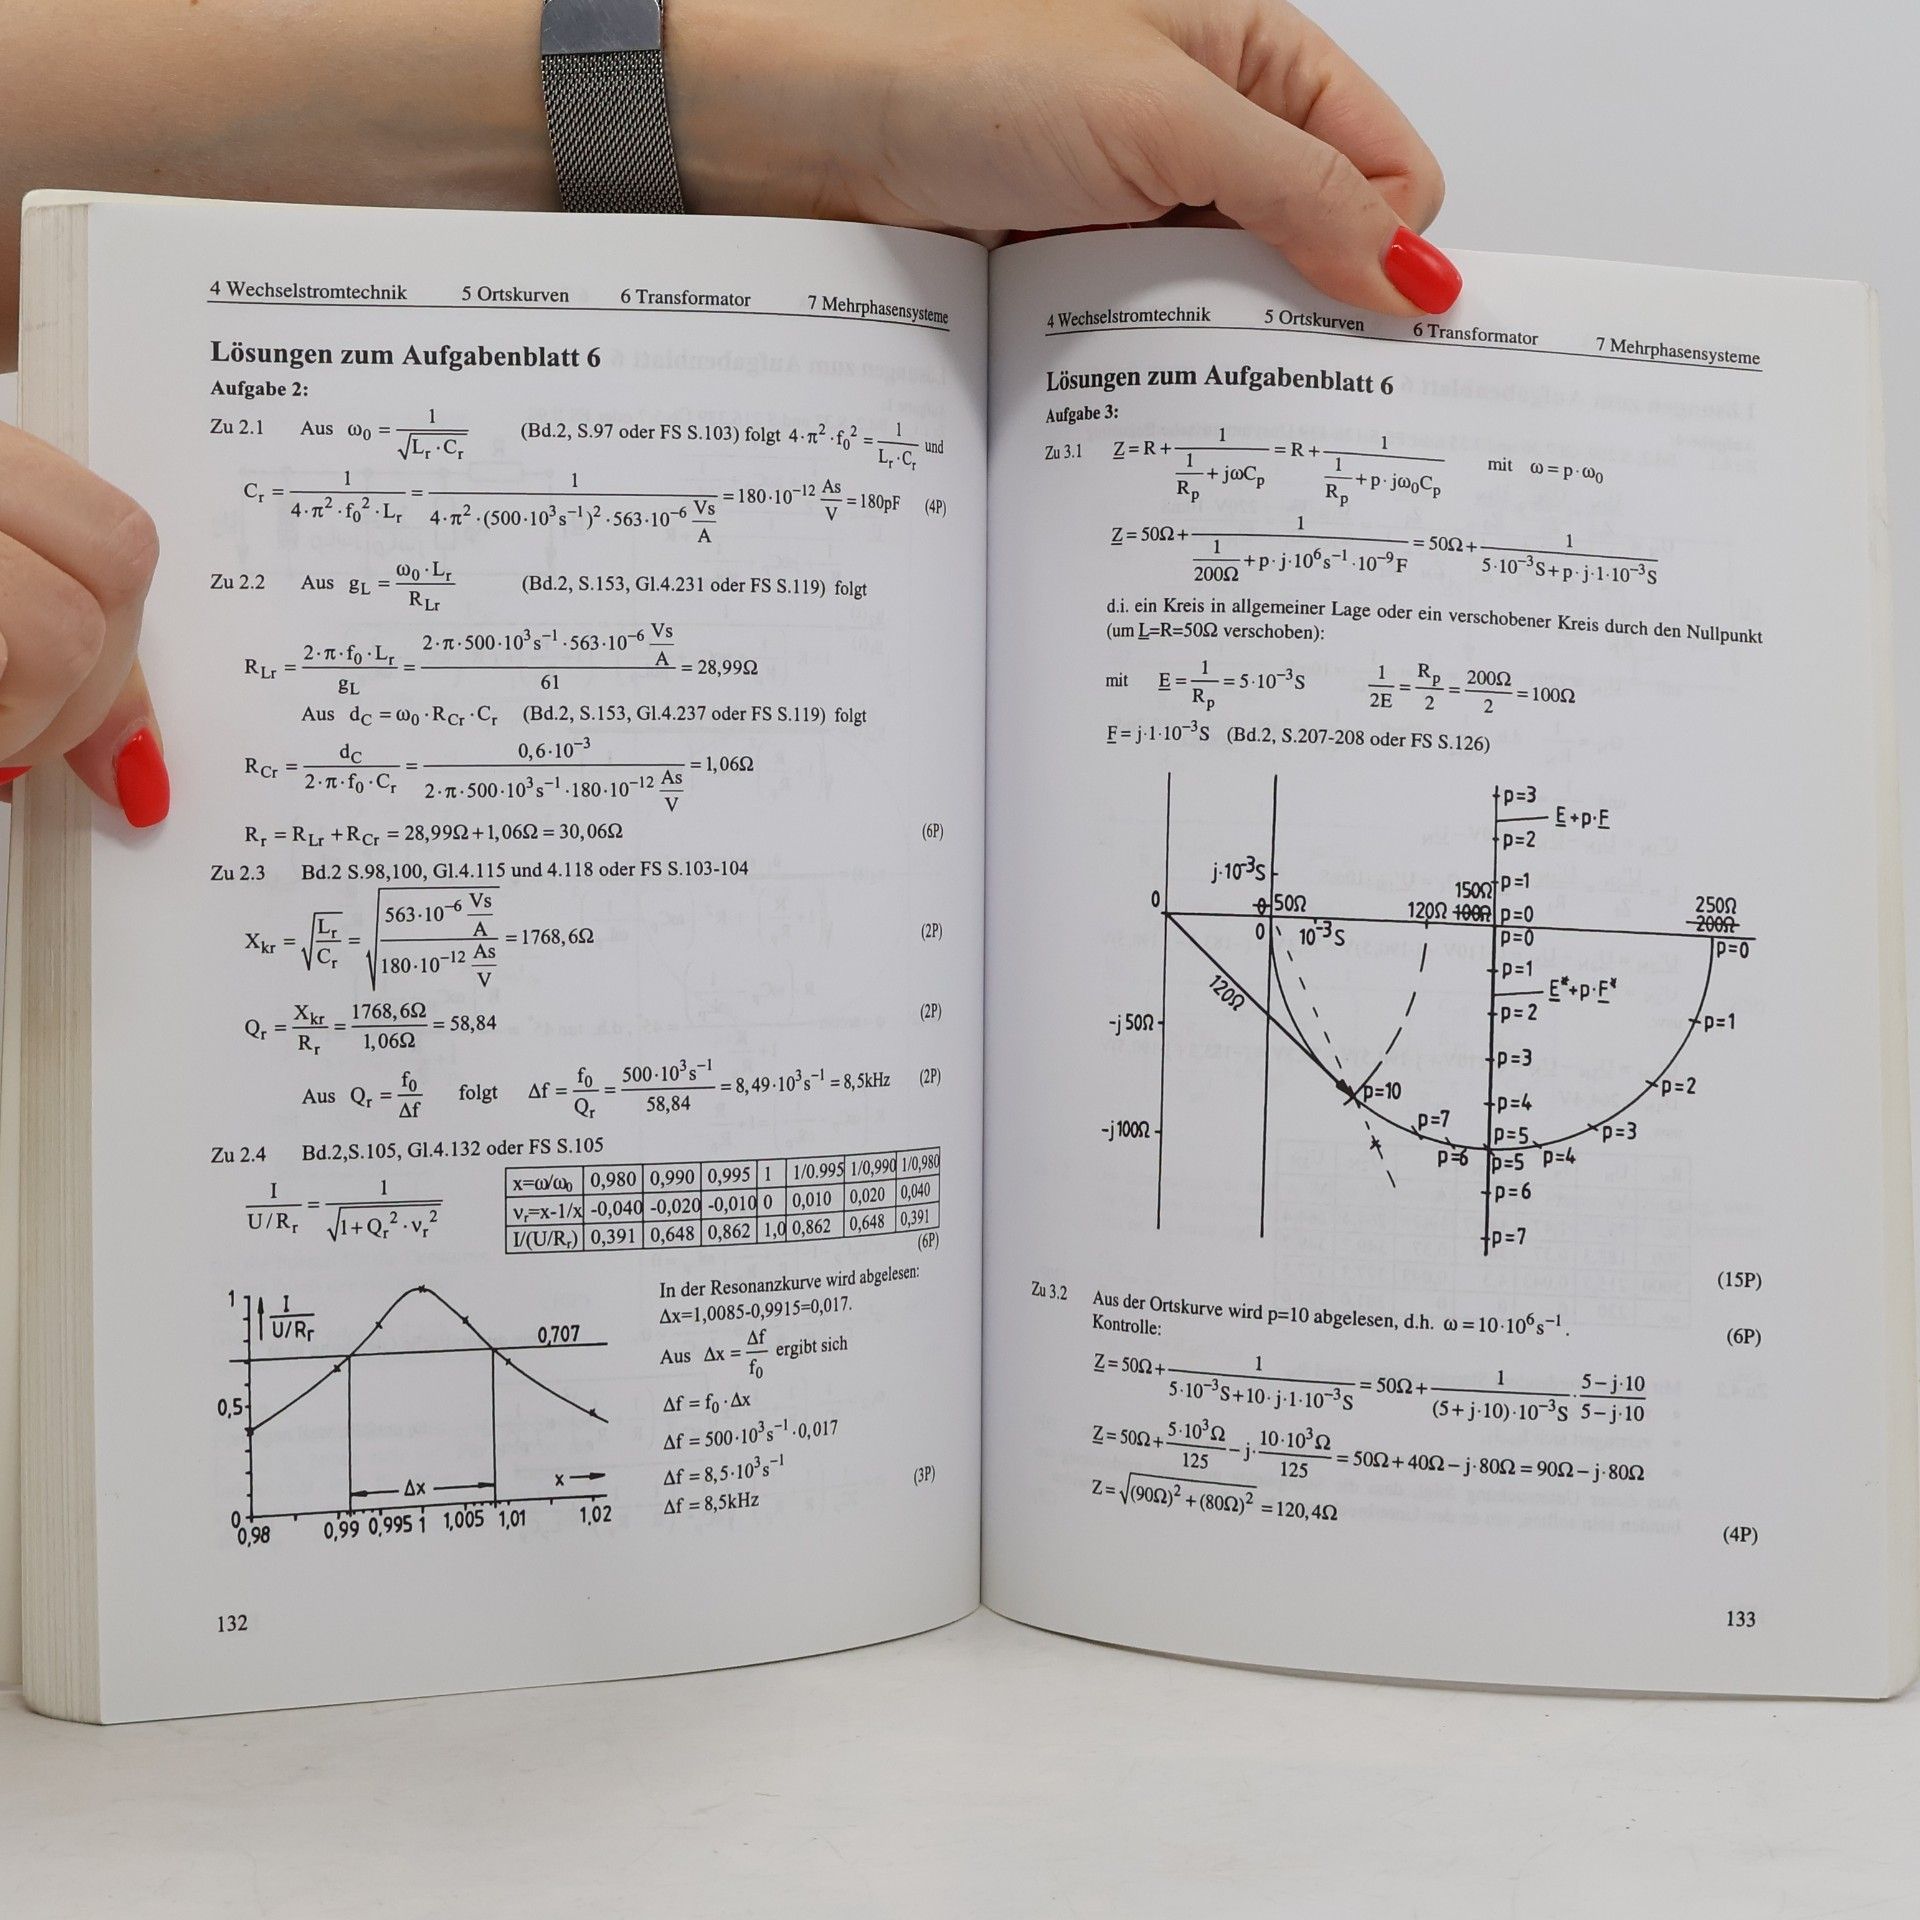 4 Wechselstromtechnik 5 Ortskurven 6 Transformator 7 Mehrphasensysteme
Lösungen zum Aufgabenblatt 6
Aufgabe 2:
Zu 2.1 Aus ω₀ = 1/√(L_r·C_r) (Bd.2, S.97 oder FS S.103) folgt 4·π²·f₀² = 1/(L_r·C_r) und
C_r = 1/(4·π²·f₀²·L_r) = 1/(4·π²·(500·10³s⁻¹)²·563·10⁻⁶ Vs/A) = 180·10⁻¹² As/V = 180pF (4P)
Zu 2.2 Aus g_L = ω₀·L_r/R_Lr (Bd.2, S.153, Gl.4.231 oder FS S.119) folgt
R_Lr = 2·π·f₀·L_r/g_L = 2·π·500·10³s⁻¹·563·10⁻⁶ Vs/A / 61 = 28,99Ω
Aus d_C = ω₀·R_Cr·C_r (Bd.2, S.153, Gl.4.237 oder FS S.119) folgt
R_Cr = d_C/(2·π·f₀·C_r) = 0,6·10⁻³/(2·π·500·10³s⁻¹·180·10⁻¹² As/V) = 1,06Ω
R_r = R_Lr + R_Cr = 28,99Ω+1,06Ω = 30,06Ω (6P)
Zu 2.3 Bd.2 S.98,100, Gl.4.115 und 4.118 oder FS S.103-104
X_kr = √(L_r/C_r) = √(563·10⁻⁶ Vs/A / 180·10⁻¹² As/V) = 1768,6Ω (2P)
Q_r = X_kr/R_r = 1768,6Ω/1,06Ω = 58,84 (2P)
Aus Q_r = f₀/Δf folgt Δf = f₀/Q_r = 500·10³s⁻¹/58,84 = 8,49·10³s⁻¹ = 8,5kHz (2P)
Zu 2.4 Bd.2,S.105, Gl.4.132 oder FS S.105
I/(U/R_r) = 1/√(1+Q_r²·ν_r²)
x=ω/ω₀ 0,980 0,990 0,995 1 1/0.995 1/0,990 1/0,980
ν_r=x-1/x -0,040 -0,020 -0,010 0 0,010 0,020 0,040
I/(U/R_r) 0,391 0,648 0,862 1,0 0,862 0,648 0,391
(6P)
1 I/(U/R_r)
0,707
0,5
Δx x
0
0,98 0,99 0,995 1 1,005 1,01 1,02
In der Resonanzkurve wird abgelesen:
Δx=1,0085-0,9915=0,017.
Aus Δx = Δf/f₀ ergibt sich
Δf = f₀·Δx
Δf = 500·10³s⁻¹·0,017
Δf = 8,5·10³s⁻¹ (3P)
Δf = 8,5kHz
132
4 Wechselstromtechnik 5 Ortskurven 6 Transformator 7 Mehrphasensysteme
Lösungen zum Aufgabenblatt 6
Aufgabe 3:
Zu 3.1 Z = R+1/(1/R_p + jωC_p) = R+1/(1/R_p + p·jω₀C_p) mit ω=p·ω₀
Z = 50Ω+1/(1/200Ω + p·j·10⁶s⁻¹·10⁻⁹F) = 50Ω+1/(5·10⁻³S+p·j·1·10⁻³S)
d.i. ein Kreis in allgemeiner Lage oder ein verschobener Kreis durch den Nullpunkt
(um L=R=50Ω verschoben):
mit E = 1/R_p = 5·10⁻³S 1/2E = R_p/2 = 200Ω/2 = 100Ω
F = j·1·10⁻³S (Bd.2, S.207-208 oder FS S.126)
p=3
E+p·F
p=2
j·10⁻³S
p=1
150Ω
250Ω
0 0 50Ω 120Ω 100Ω p=0 200Ω
0 10⁻³S p=0 p=0
120Ω
p=1
E*+p·F*
p=2
-j50Ω
p=1
p=3
p=10
p=2
p=4
p=7
-j100Ω
p=5
p=3
p=6 p=5 p=4
p=6
p=7
(15P)
Zu 3.2 Aus der Ortskurve wird p=10 abgelesen, d.h. ω = 10·10⁶s⁻¹. (6P)
Kontrolle:
Z = 50Ω+1/(5·10⁻³S+10·j·1·10⁻³S) = 50Ω+1/((5+j·10)·10⁻³S) · (5−j·10)/(5−j·10)
Z = 50Ω+5·10³Ω/125 − j·10·10³Ω/125 = 50Ω+40Ω−j·80Ω = 90Ω−j·80Ω
Z = √((90Ω)²+(80Ω)²) = 120,4Ω
(4P)
133